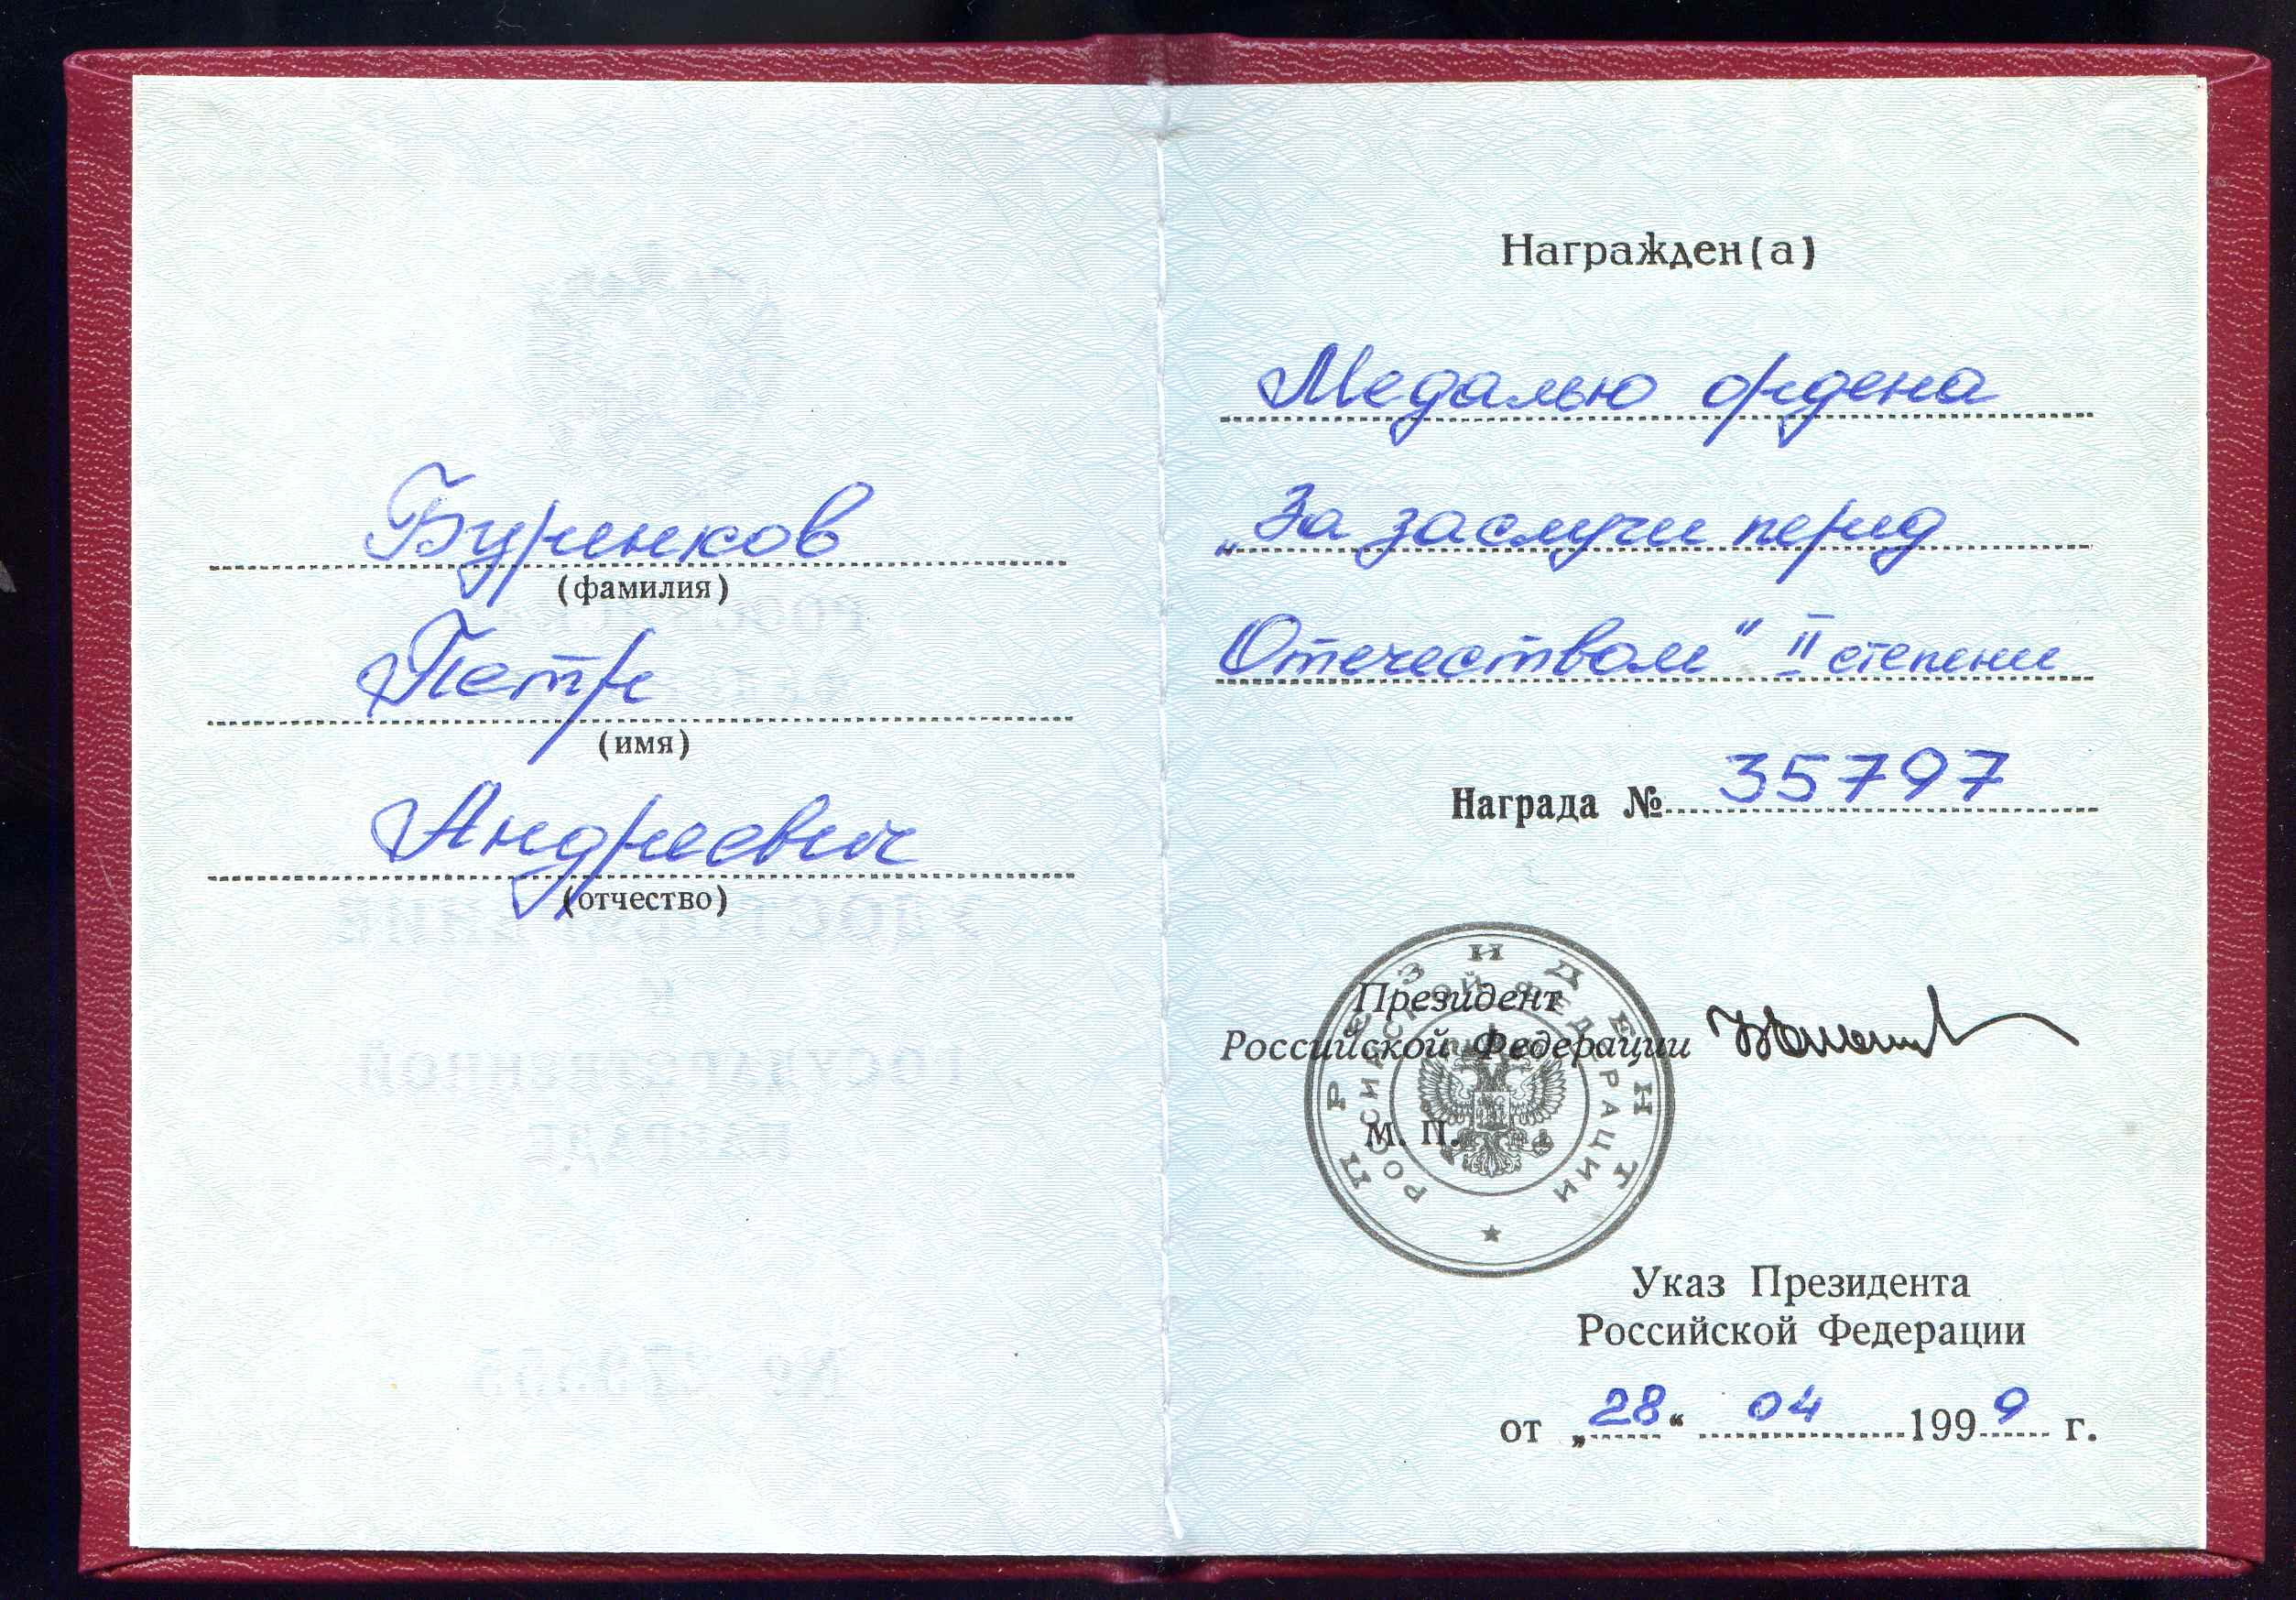 Буренков
(фамилия)
Петр
(имя)
Андреевич
(отчество)
Награжден(а)
Медалью ордена
„За заслуги перед
Отечеством“ II степени
Награда № 35797
Президент
Российской Федерации
М. П.
ПРЕЗИДЕНТ
РОССИЙСКОЙ ФЕДЕРАЦИИ
Указ Президента
Российской Федерации
от „28“ 04 1999 г.